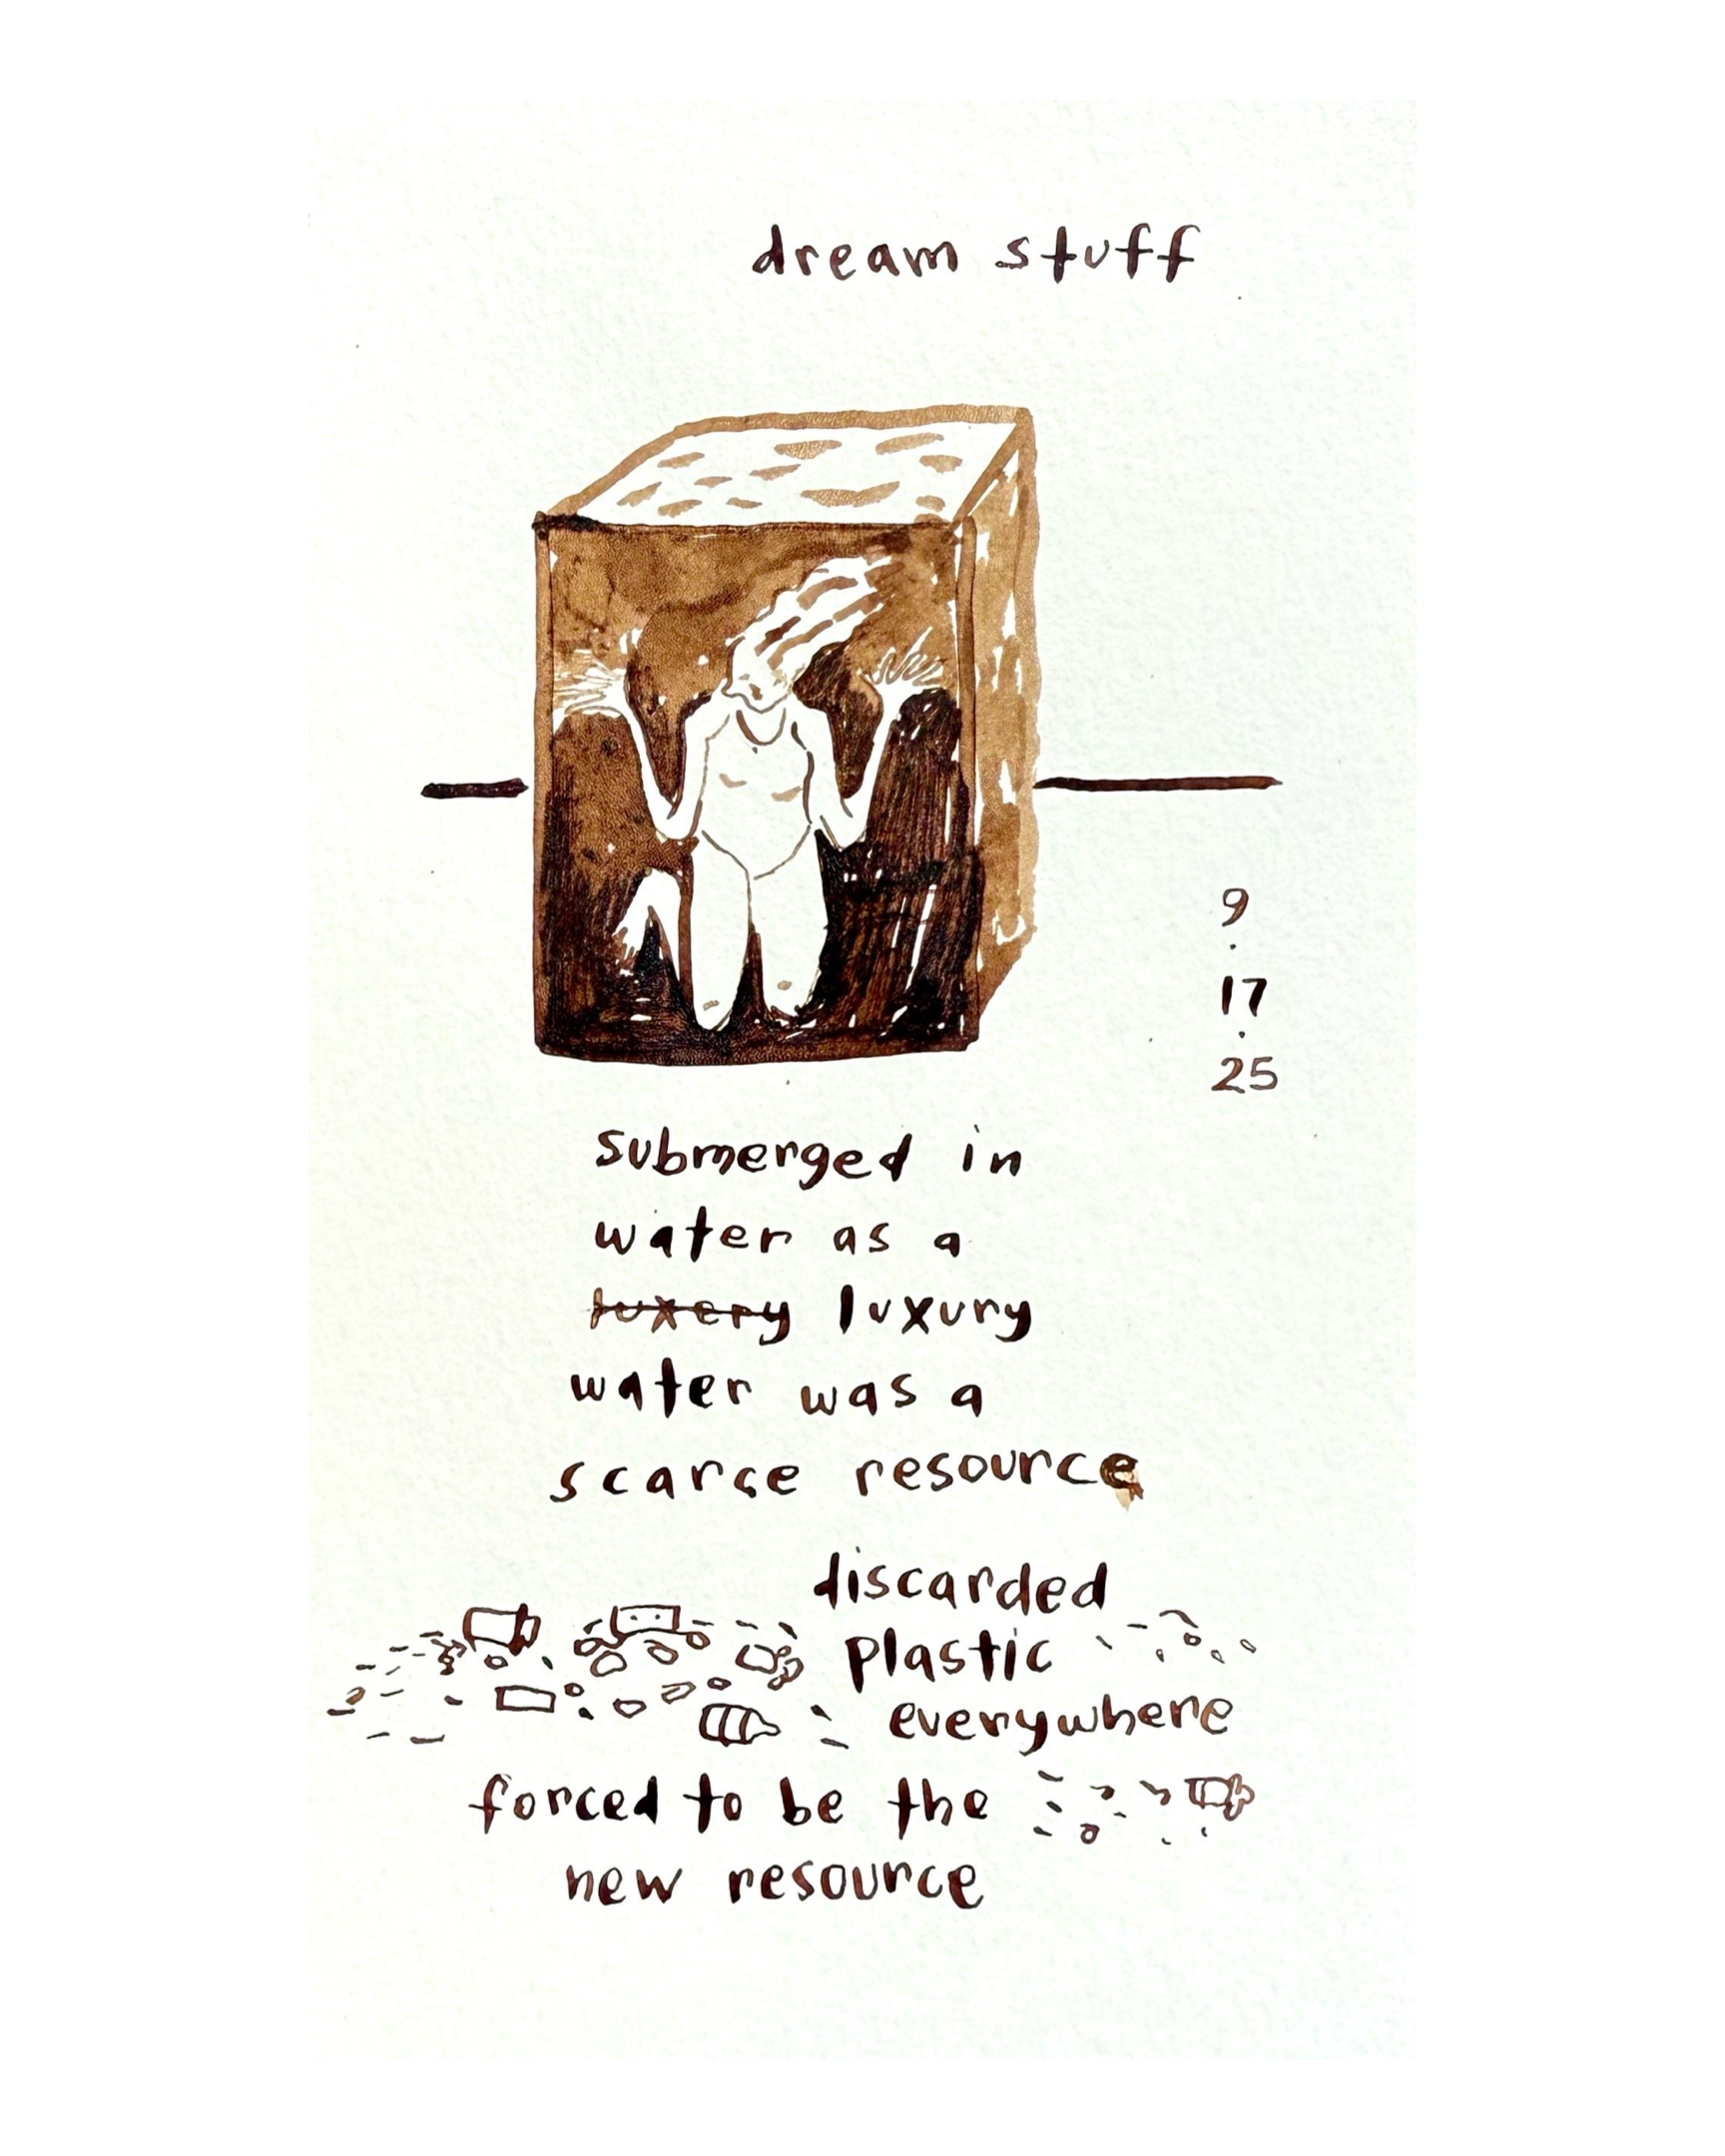 dream stuff
9
.
17
.
25
submerged in
water as a
luxery luxury
water was a
scarce resource
discarded
plastic
everywhere
forced to be the
new resource